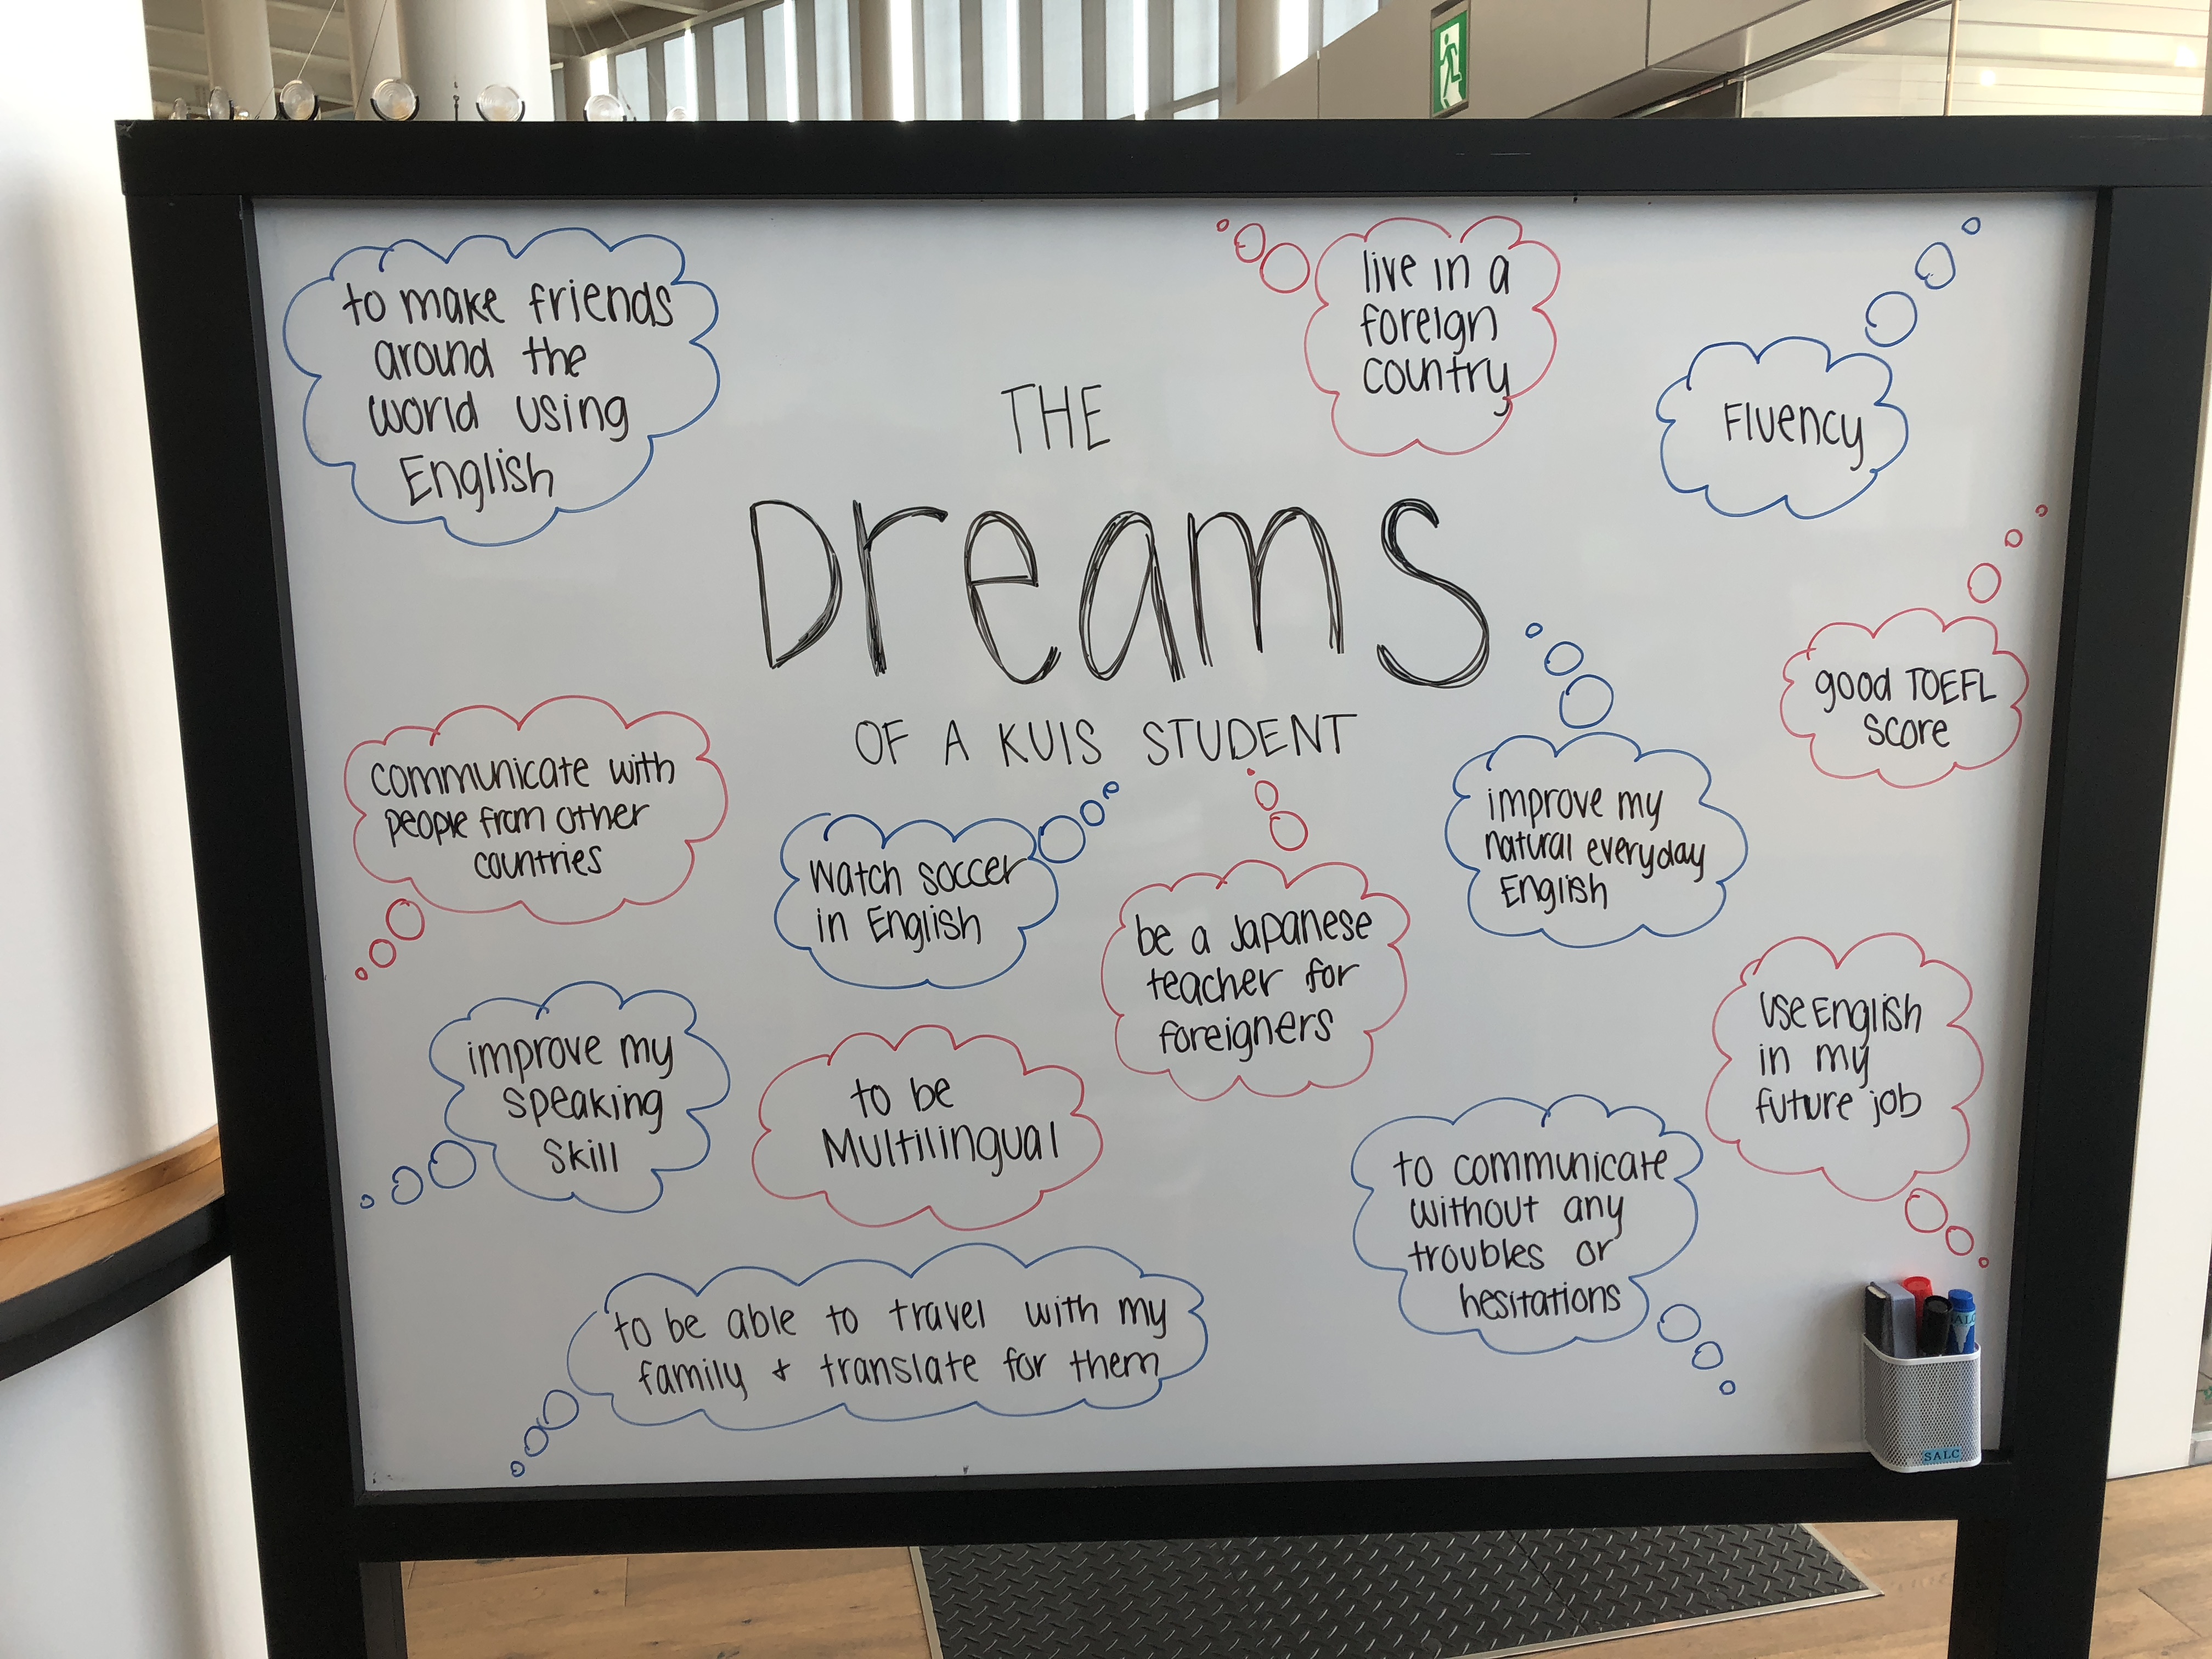 to make friends
around the
world using
English
live in a
foreign
country
Fluency
THE
Dreams
OF A KUIS STUDENT
good TOEFL
score
communicate with
people from other
countries
watch soccer
in English
be a Japanese
teacher for
foreigners
improve my
natural everyday
English
use English
in my
future job
improve my
speaking
skill
to be
Multilingual
to communicate
without any
troubles or
hesitations
to be able to travel with my
family & translate for them
SALC